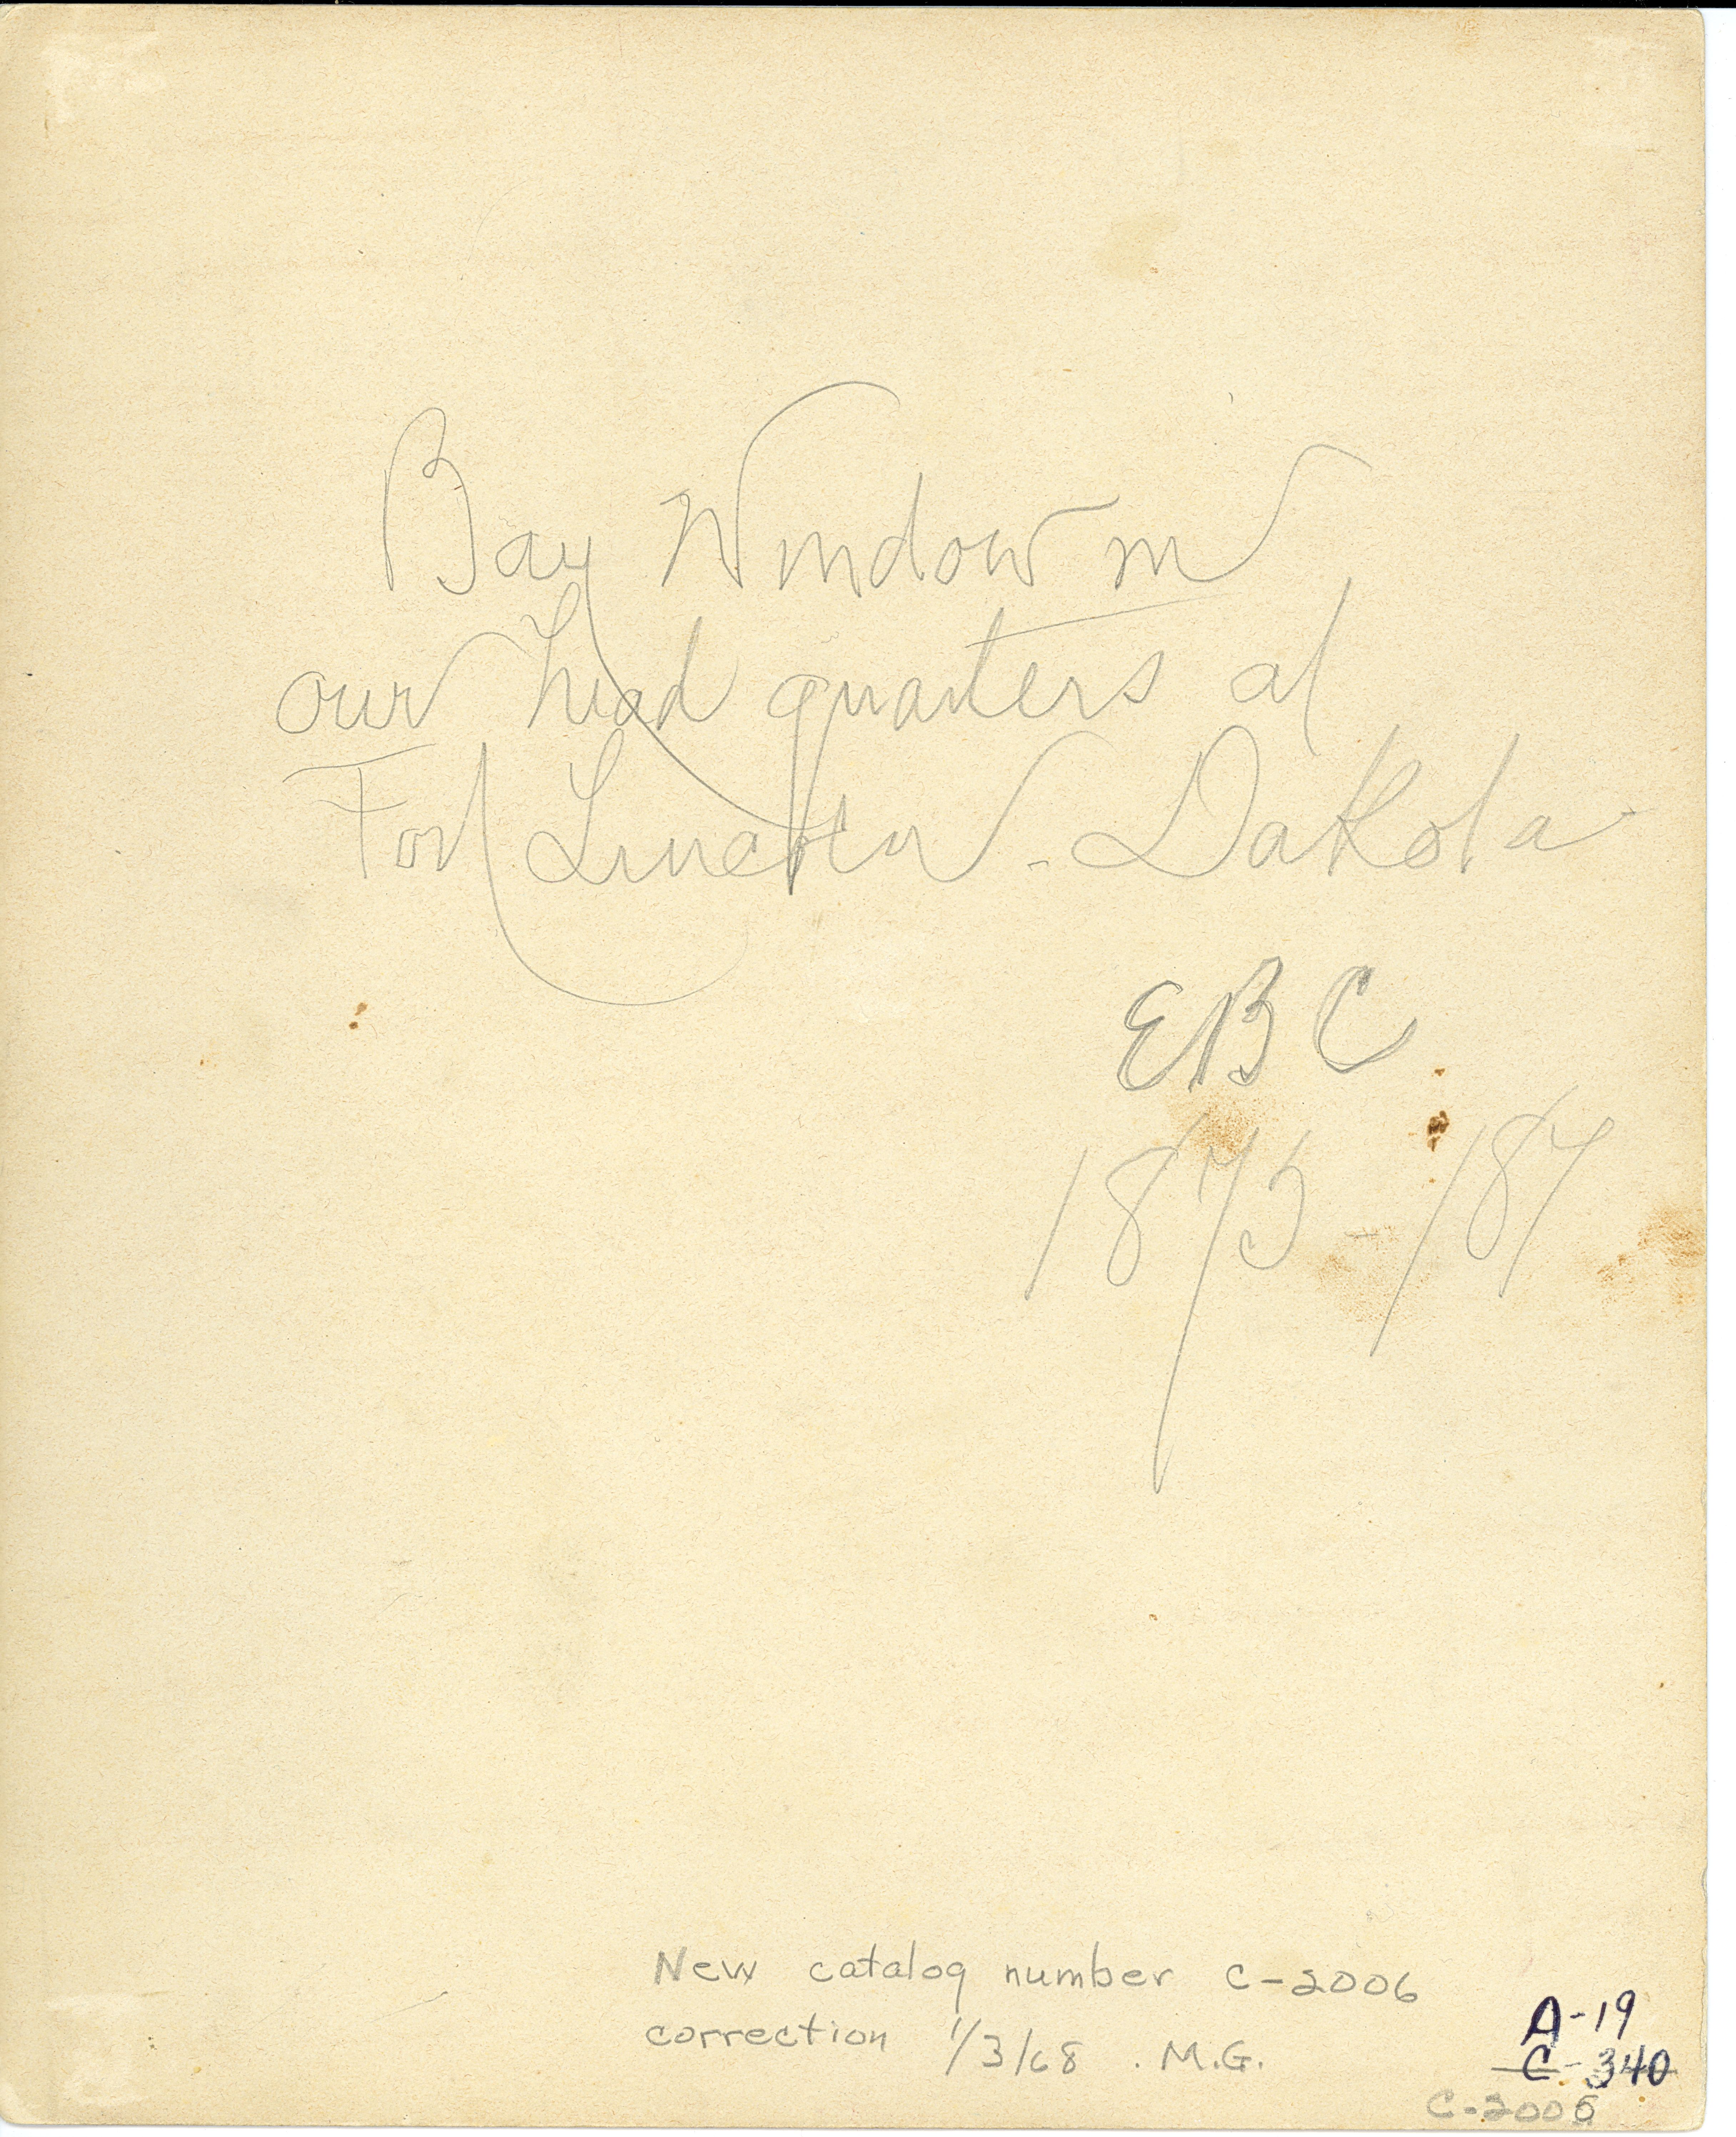 Bay Window in
our head quarters at
Fort Lincoln - Dakota
EBC
1875 - 187
New catalog number C-2006
correction 1/3/68 . M.G.
A-19
C-340
C-2006